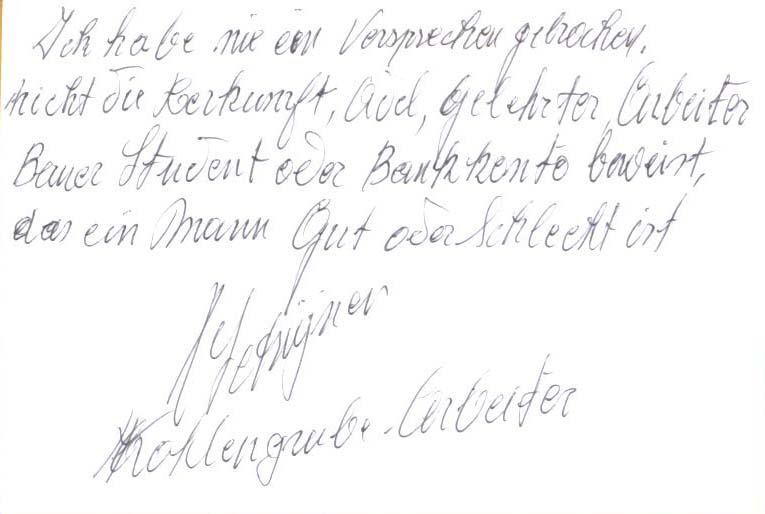 Ich habe nie ein Versprechen gebrochen.
nicht die Herkunft, Adel, Gelehrter, Arbeiter
Bauer Student oder Bankkonto beweist,
das ein Mann Gut oder Schlecht ist
Kohlengrube-Arbeiter